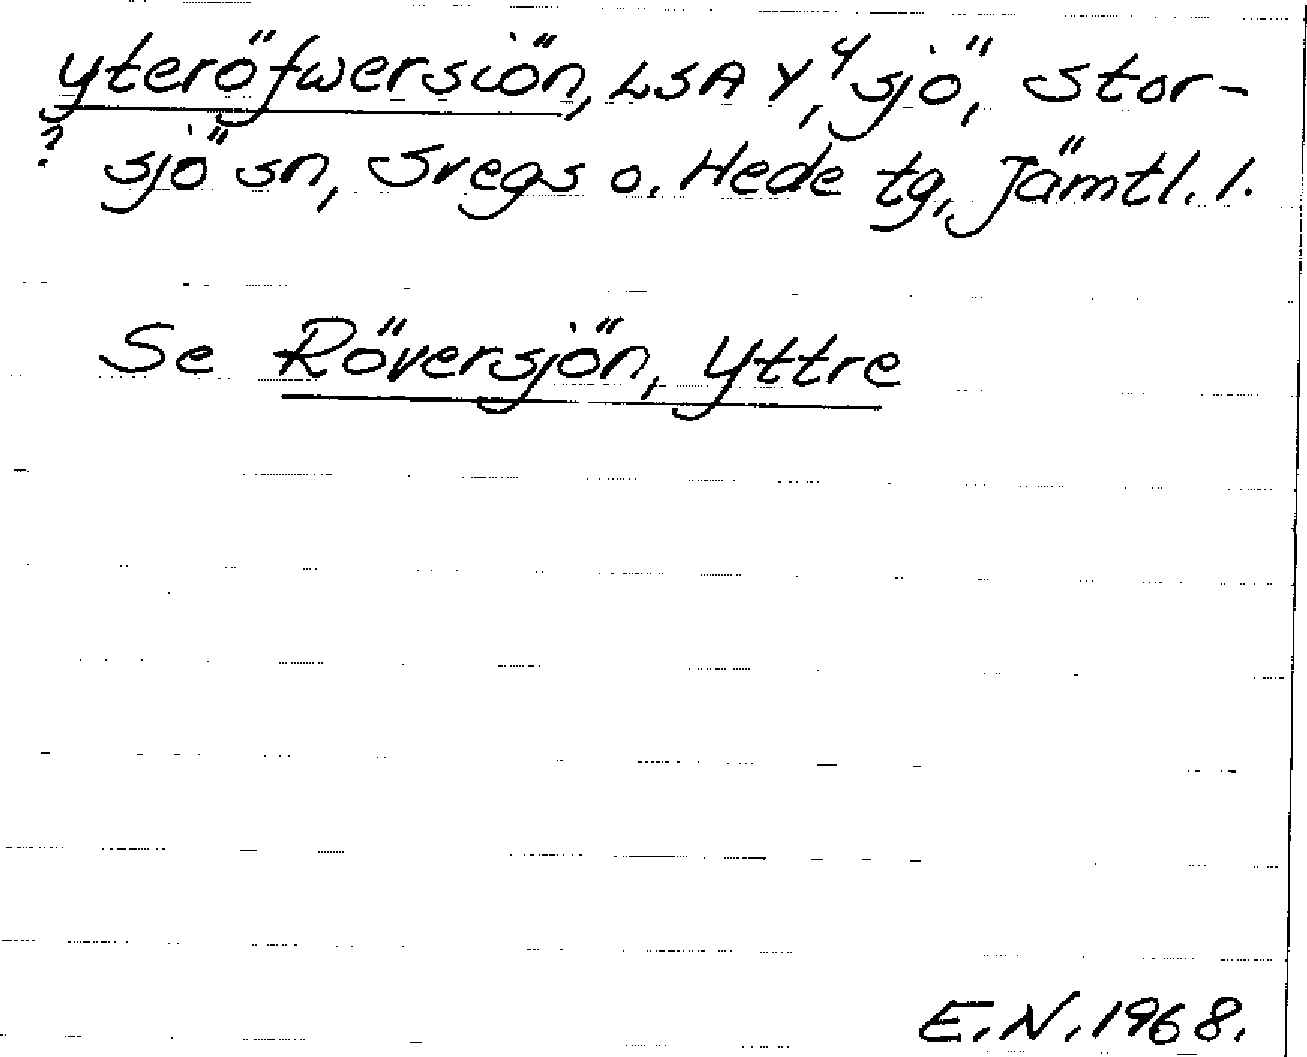 yteröfwersiön, LSA Y, 4 sjö, Stor-
? sjö sn, Svegs o. Hede tg, Jämtl. l.
Se Röversjön, Yttre
E.N. 1968.